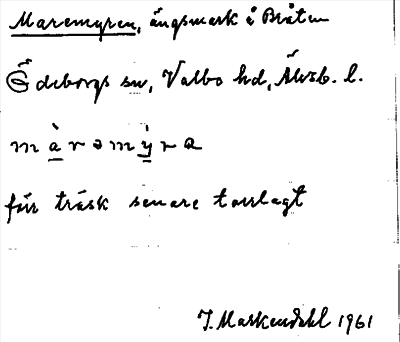 Maremyren, ängsmark å Bråten
Ödeborgs sn, Valbo hd, Älvsb. l.
màrəmy̆ra
för träsk senare torrlagt
J. Markendahl 1961